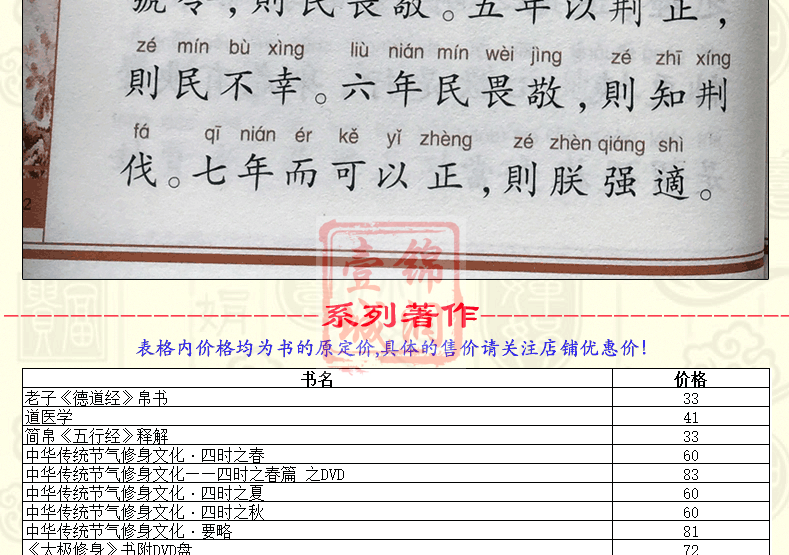 號令，則民畏敬。五年以荆正，
zé mín bù xìng liù nián mín wèi jìng zé zhī xíng
則民不幸。六年民畏敬，則知荆
fá qī nián ér kě yǐ zhèng zé zhèn qiáng shì
伐。七年而可以正，則朕强適。
2
系列著作
表格内价格均为书的原定价,具体的售价请关注店铺优惠价!
书名 价格
老子《德道经》帛书 33
道医学 41
简帛《五行经》释解 33
中华传统节气修身文化·四时之春 60
中华传统节气修身文化——四时之春篇 之DVD 83
中华传统节气修身文化·四时之夏 60
中华传统节气修身文化·四时之秋 60
中华传统节气修身文化·要略 81
《太极修身》书附DVD盘 72